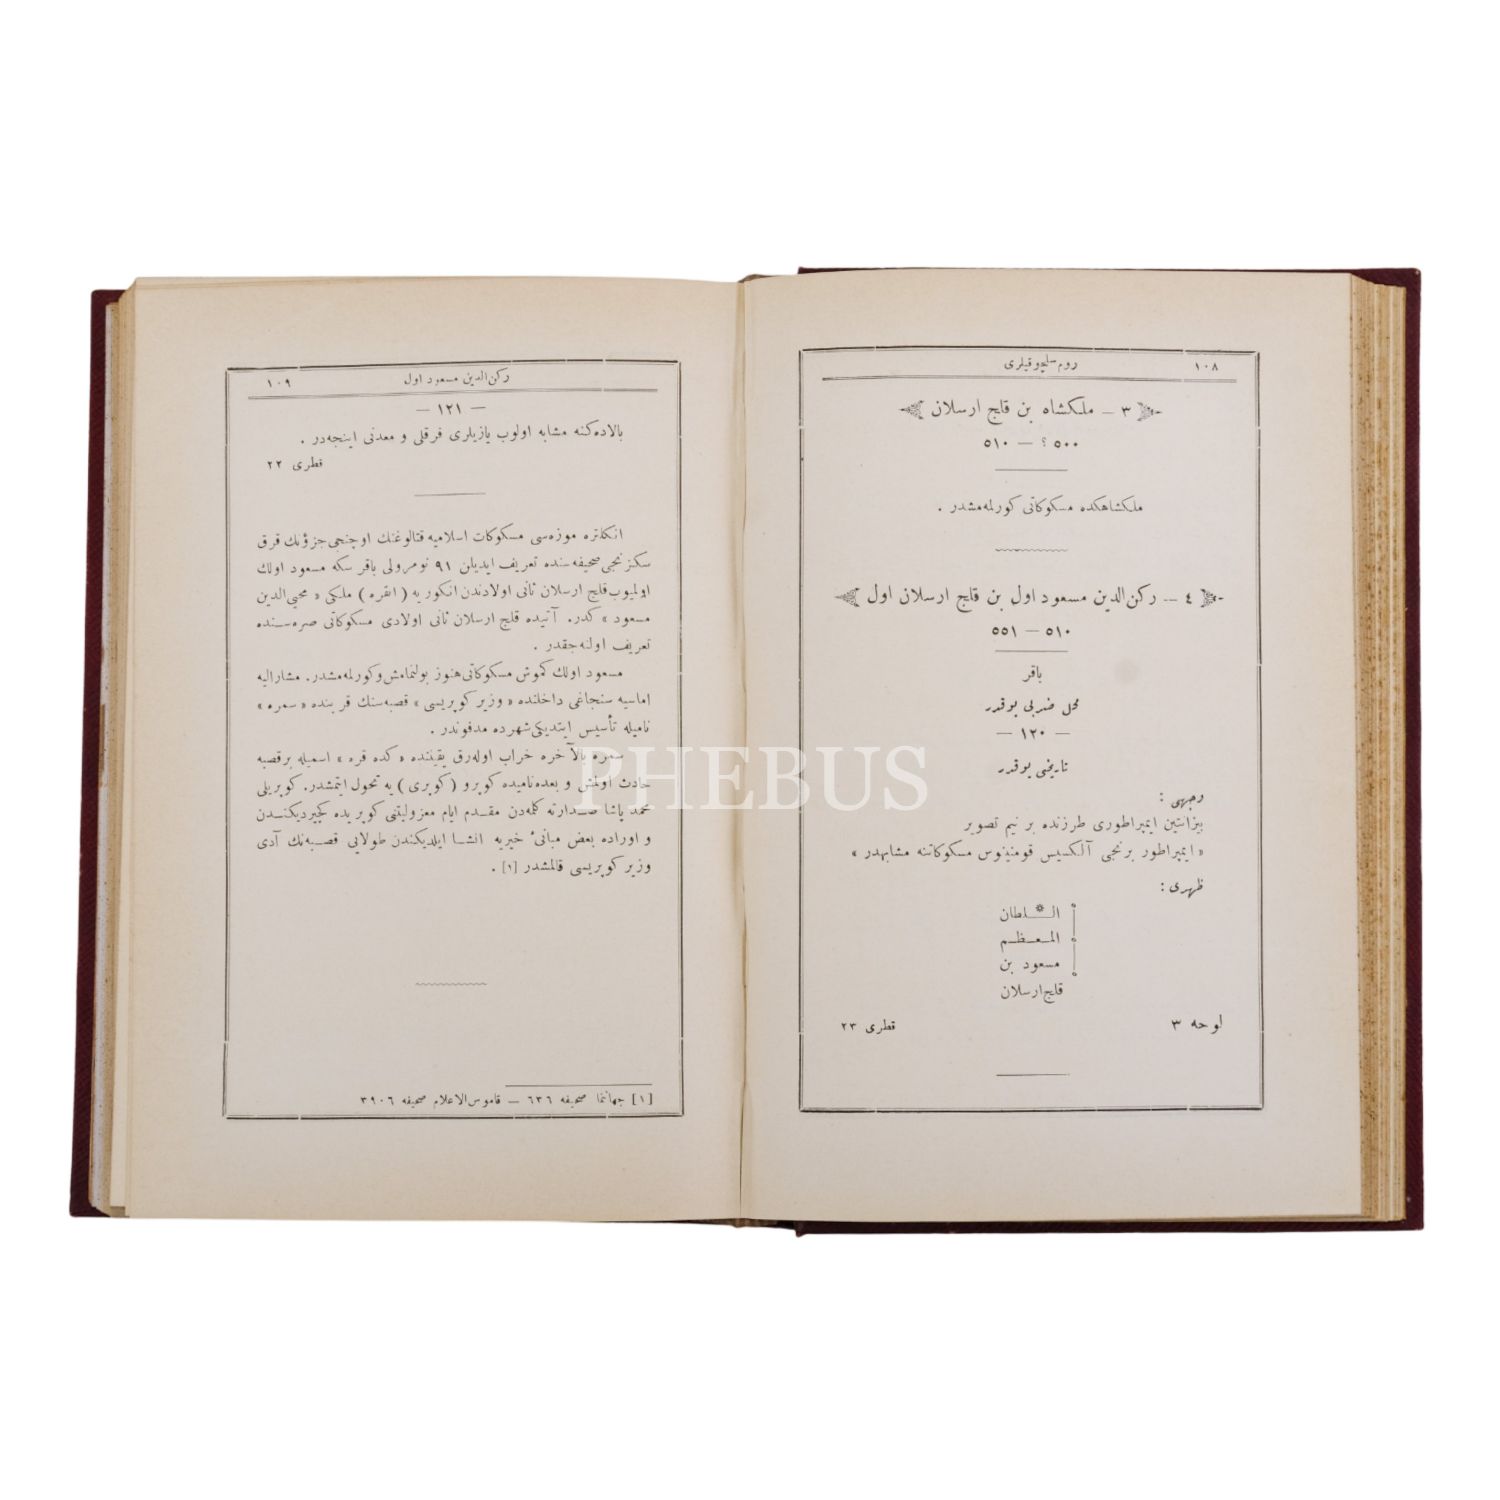 ١٠٨
روم سلچوقیلری
٣ — ملكشاه بن قلج ارسلان
٥٠٠ ؟ — ٥١٠
ملكشاهكده مسكوكاتی كورلمه‌مشدر .
٤ — ركن‌الدین مسعود اول بن قلج ارسلان اول
٥١٠ — ٥٥١
باقر
محل ضربی یوقدر
— ١٢٠ —
تاریخی یوقدر
وجهی :
بیزانتین ایمپراطوری طرزنده بر نیم تصویر
« ایمپراطور برنجی آلكسیس قومنینوس مسكوكاتنه مشابهدر »
ظهری :
السلطان
المعظم
مسعود بن
قلج ارسلان
لوحه ٣
قطری ٢٣
ركن‌الدین مسعود اول
١٠٩
— ١٢١ —
بالاده‌كنه مشابه اولوب یازیلری فرقلی و معدنی اینجه‌در .
قطری ٢٢
انكلتره موزه‌سی مسكوكات اسلامیه قتالوغنك اوچنجی جزؤنك قرق
سكزنجی صحیفه‌سنده تعریف ایدیلن ٩١ نومرولی باقر سكه مسعود اولك
اولمیوب قلج ارسلان ثانی اولادندن انكوریه ( انقره ) ملكی « محیی‌الدین
مسعود » كدر. آتیده قلج ارسلان ثانی اولادی مسكوكاتی صره‌سنده
تعریف اولنه‌جقدر .
مسعود اولك كموش مسكوكاتی هنوز بولنمامش و كورلمه‌مشدر. مشارالیه
اماسیه سنجاغی داخلنده « وزیر كوپریسی » قصبه‌سنك قربنده « سمره »
نامیله تأسیس ایتدیكی شهرده مدفوندر .
سمره بالآخره خراب اوله‌رق یقیننده « كده قره » اسمیله بر قصبه
حادث اولمش و بعده نامیده كوپرو ( كوپری ) یه تحول ایتمشدر. كوپریلی
محمد پاشا صدارته كلمه‌دن مقدم ایام معزولیتنی كوپریده كچیردیكندن
و اوراده بعض مبانیٔ خیریه انشا ایلدیكندن طولایی قصبه‌نك آدی
وزیر كوپریسی قالمشدر [١] .
[١] جهاننما صحیفه ٦٣٦ — قاموس‌الاعلام صحیفه ٣٩٠٦
PHEBUS